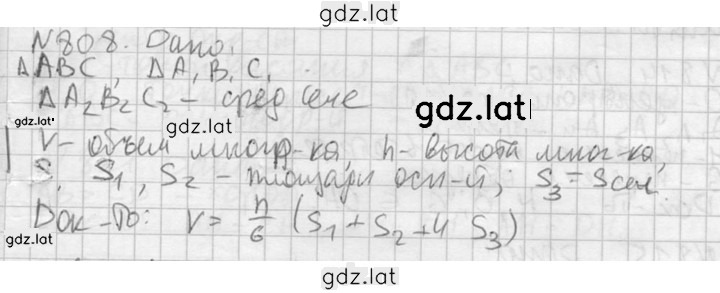 gdz.lat
N808. Дано:
ΔABC, ΔA₁B₁C₁
gdz.lat
ΔA₂B₂C₂ – сред сече
gdz.lat
gdz.lat
V – объем многогр-ка, h – высота мног-ка,
S₁, S₂ – площади осн-й; S₃ = Sсеч.
Док-ть: V = h/6 (S₁ + S₂ + 4 S₃)
gdz.lat
gdz.lat
gdz.lat